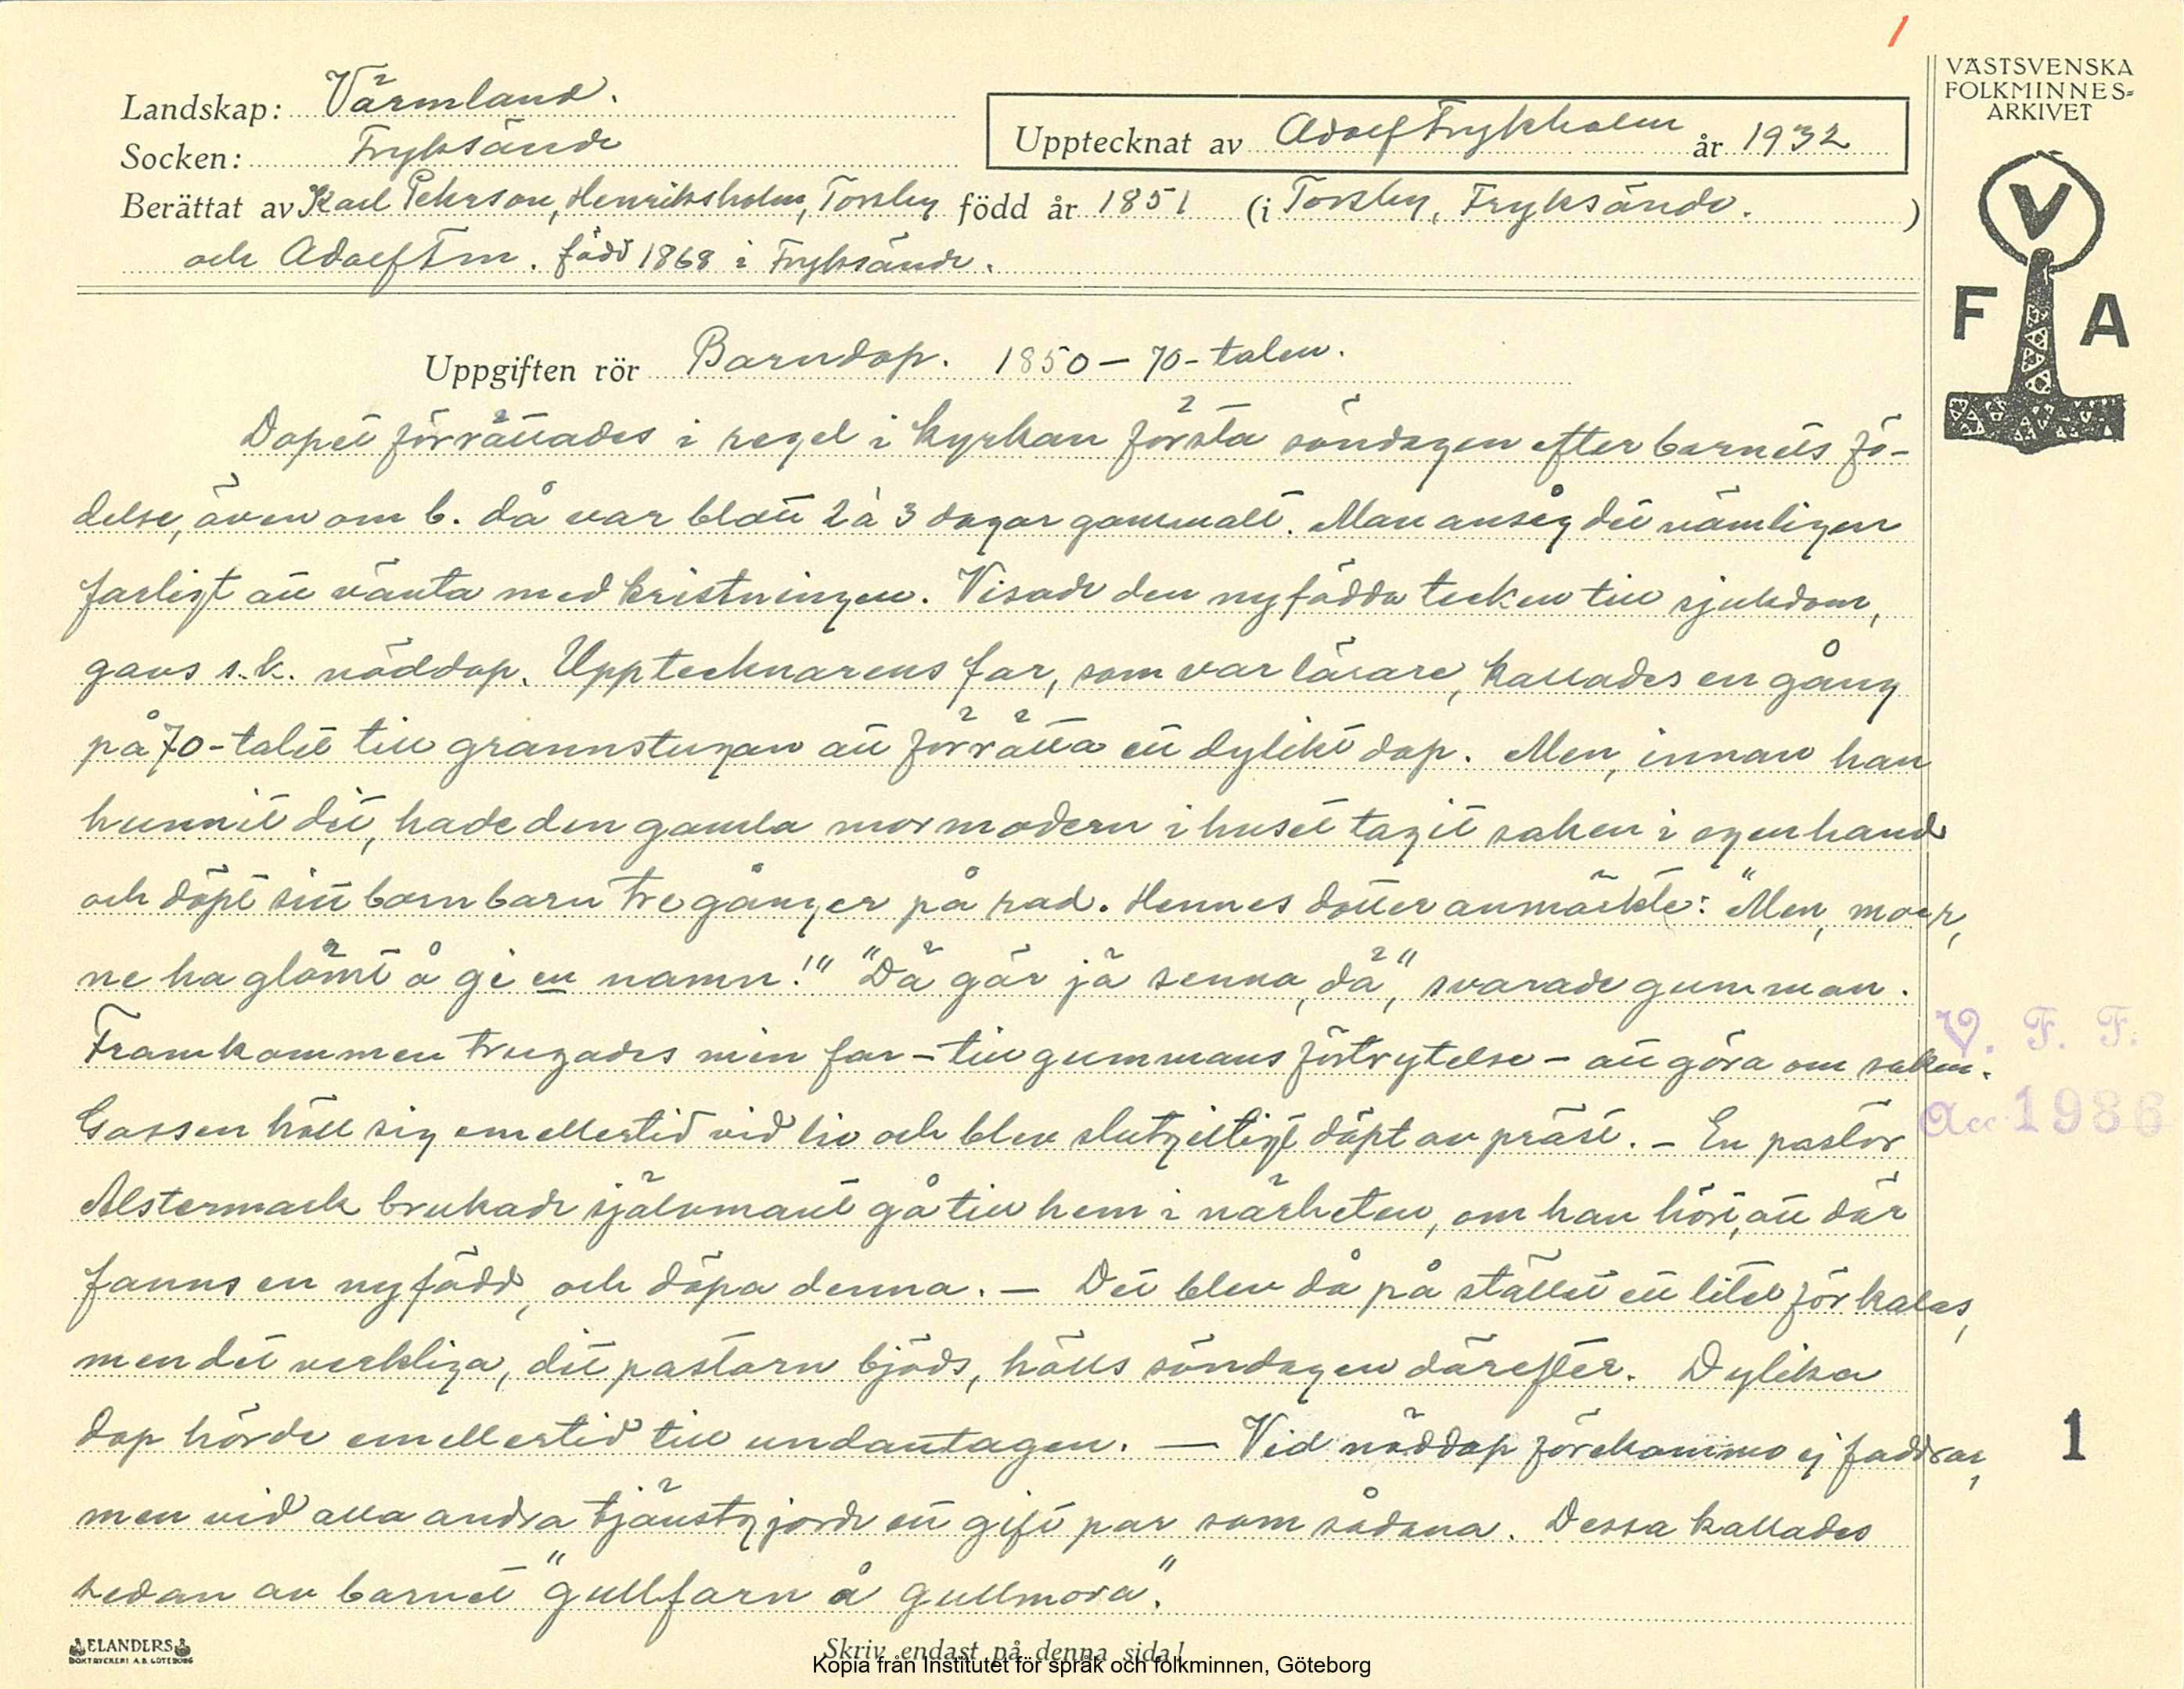 1
VÄSTSVENSKA
FOLKMINNES-
ARKIVET
Landskap: Värmland.
Socken: Fryksände
Upptecknat av Adolf Frykholm år 1932
Berättat av Karl Peterson, Henriksholm, Torsby född år 1851 (i Torsby, Fryksände.)
och Adolf Fm. född 1868 i Fryksände.
V
F A
Uppgiften rör Barndop. 1850-70-talen.
Dopet förrättades i regel i kyrkan första söndagen efter barnets fö-
delse, även om b. då var blott 2 à 3 dagar gammalt. Man ansåg det nämligen
farligt att vänta med kristningen. Visade den nyfödda tecken till sjukdom,
gavs s.k. nöddop. Upptecknarens far, som var lärare, kallades en gång
på 70-talet till grannstugan att förrätta ett dylikt dop. Men, innan han
hunnit dit, hade den gamla mormodern i huset tagit saken i egen hand
och döpt sitt barnbarn tre gånger på rad. Hennes dotter anmärkte: "Men, moer,
ne ha glömt å ge en namn!" "Dä gär jä senna, dä", svarade gumman.
Framkommen trugades min far - till gummans förtrytelse - att göra om saken.
Gossen höll sig emellertid vid liv och blev slutgiltigt döpt av präst. - En pastor
Alstermark brukade självmant gå till hem i närheten, om han hört, att där
fanns en nyfödd, och döpa denna. - Det blev då på stället ett litet förkalas,
men det verkliga, dit pastorn bjöds, hölls söndagen därefter. Dylika
dop hörde emellertid till undantagen. - Vid nöddop förekommo ej faddrar,
men vid alla andra tjänstgjorde ett gift par som sådana. Dessa kallades
sedan av barnet "gullfarn å gullmora".
V. F. F.
Acc 1986
1
ELANDERS
BOKTRYCKERI A.B. GÖTEBORG
Skriv endast på denna sida!
Kopia från Institutet för språk och folkminnen, Göteborg